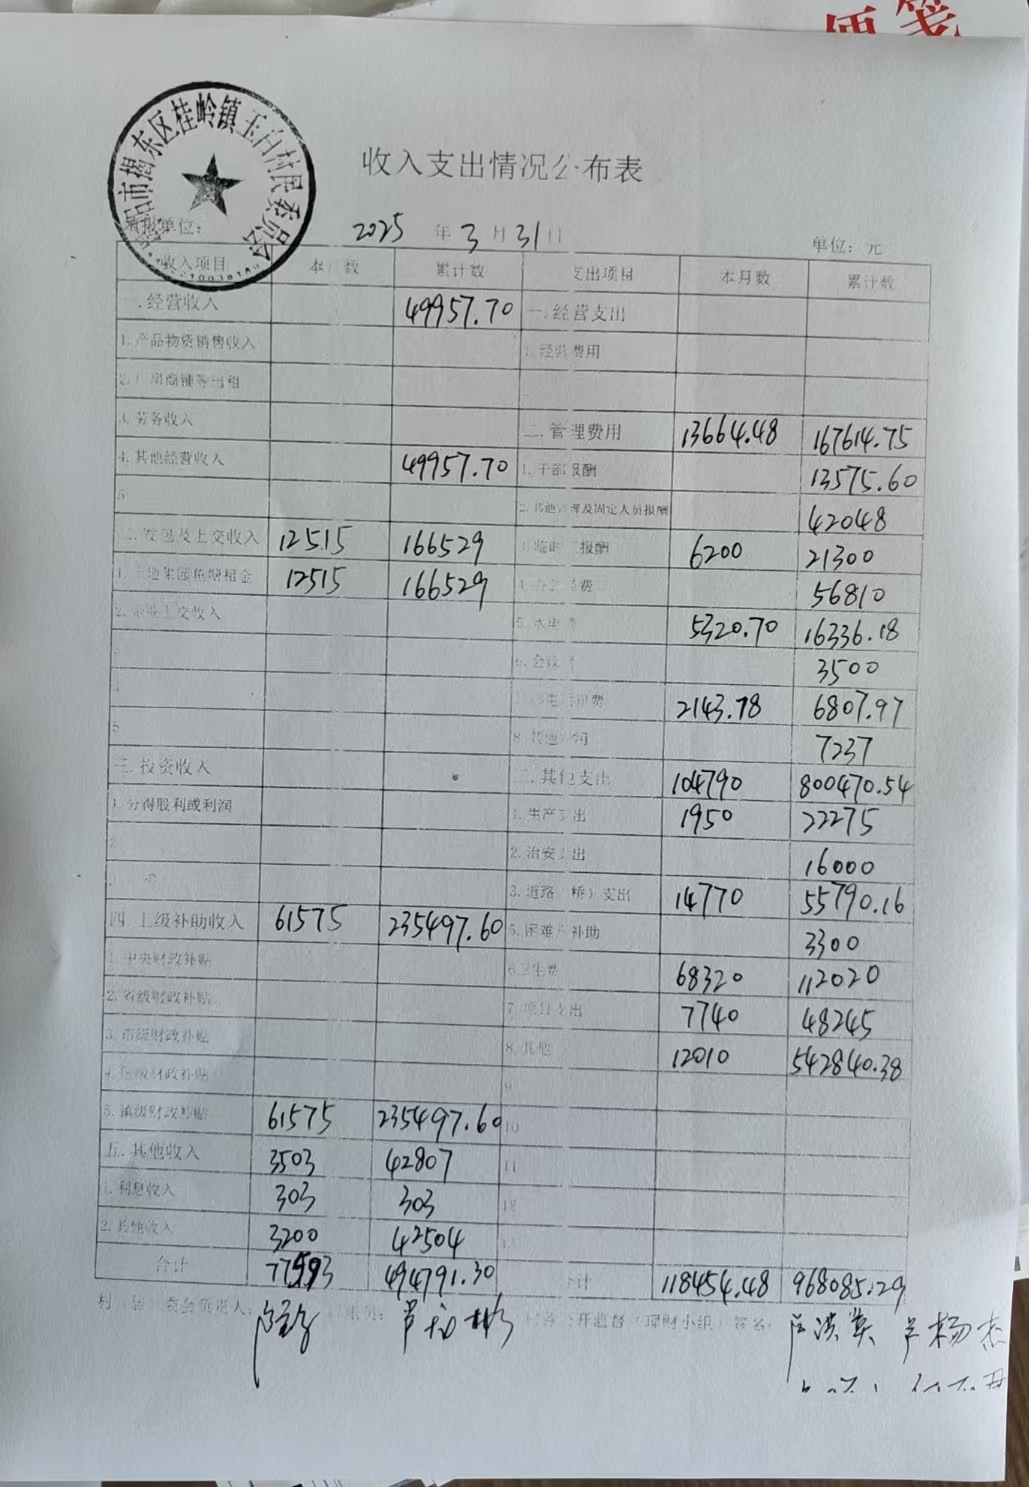 便笺
揭东区桂岭镇玉白村民委员会
收入支出情况公布表
填报单位： 2025 年 3 月 31 日 单位：元
收入项目 本月数 累计数 支出项目 本月数 累计数
一.经营收入 49957.70 一.经营支出
1.产品物资销售收入 1.经营费用
2.厂房商铺等出租
3.劳务收入 二.管理费用 13664.48 167614.75
4.其他经营收入 49957.70 1.干部报酬 13575.60
5 2.其他管理及固定人员报酬 42048
二.发包及上交收入 12515 166529 3.临时工报酬 6200 21300
1.土地果园鱼塘租金 12515 166529 4.办公费 56810
2.企业上交收入 5.水电费 5320.70 16336.18
6.会议费 3500
4 费 2143.78 6807.97
5 8.其他 7237
三.投资收入 三.其他支出 104790 800470.54
1.分得股利或利润 1.生产支出 1950 22275
2 2.治安支出 16000
3.道路（桥）支出 14770 55790.16
四.上级补助收入 61575 235497.60 5.困难户补助 3300
1.中央财政补贴 6.卫生费 68320 112020
2.省级财政补贴 7.项目支出 7740 48245
3.市级财政补贴 8.其他 12010 542840.38
4.区级财政补贴 9
5.镇级财政补贴 61575 235497.60 10
五.其他收入 3503 42807 11
1.利息收入 303 303 12
2.其他收入 3200 42504 13
合计 77593 494791.30 合计 118454.48 968085.29
村（居）委会负责人： 村务公开监督（理财小组）签名：